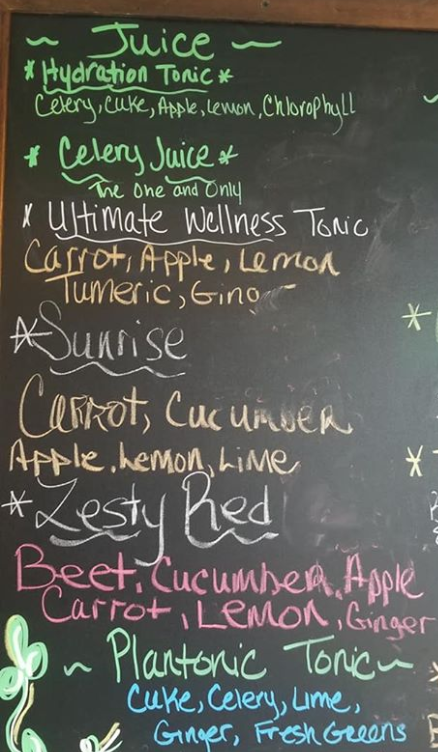 ~ Juice ~
* Hydration Tonic *
Celery, Cuke, Apple, Lemon, Chlorophyll
* Celery Juice *
The One and Only
* Ultimate Wellness Tonic
Carrot, Apple, Lemon
Tumeric,
* Sunrise
Carrot, Cucumber
Apple, Lemon, Lime
* Zesty Red
Beet, Cucumber, Apple
Carrot, Lemon, Ginger
~ Plantonic Tonic ~
Cuke, Celery, Lime,
Ginger, Fresh Greens